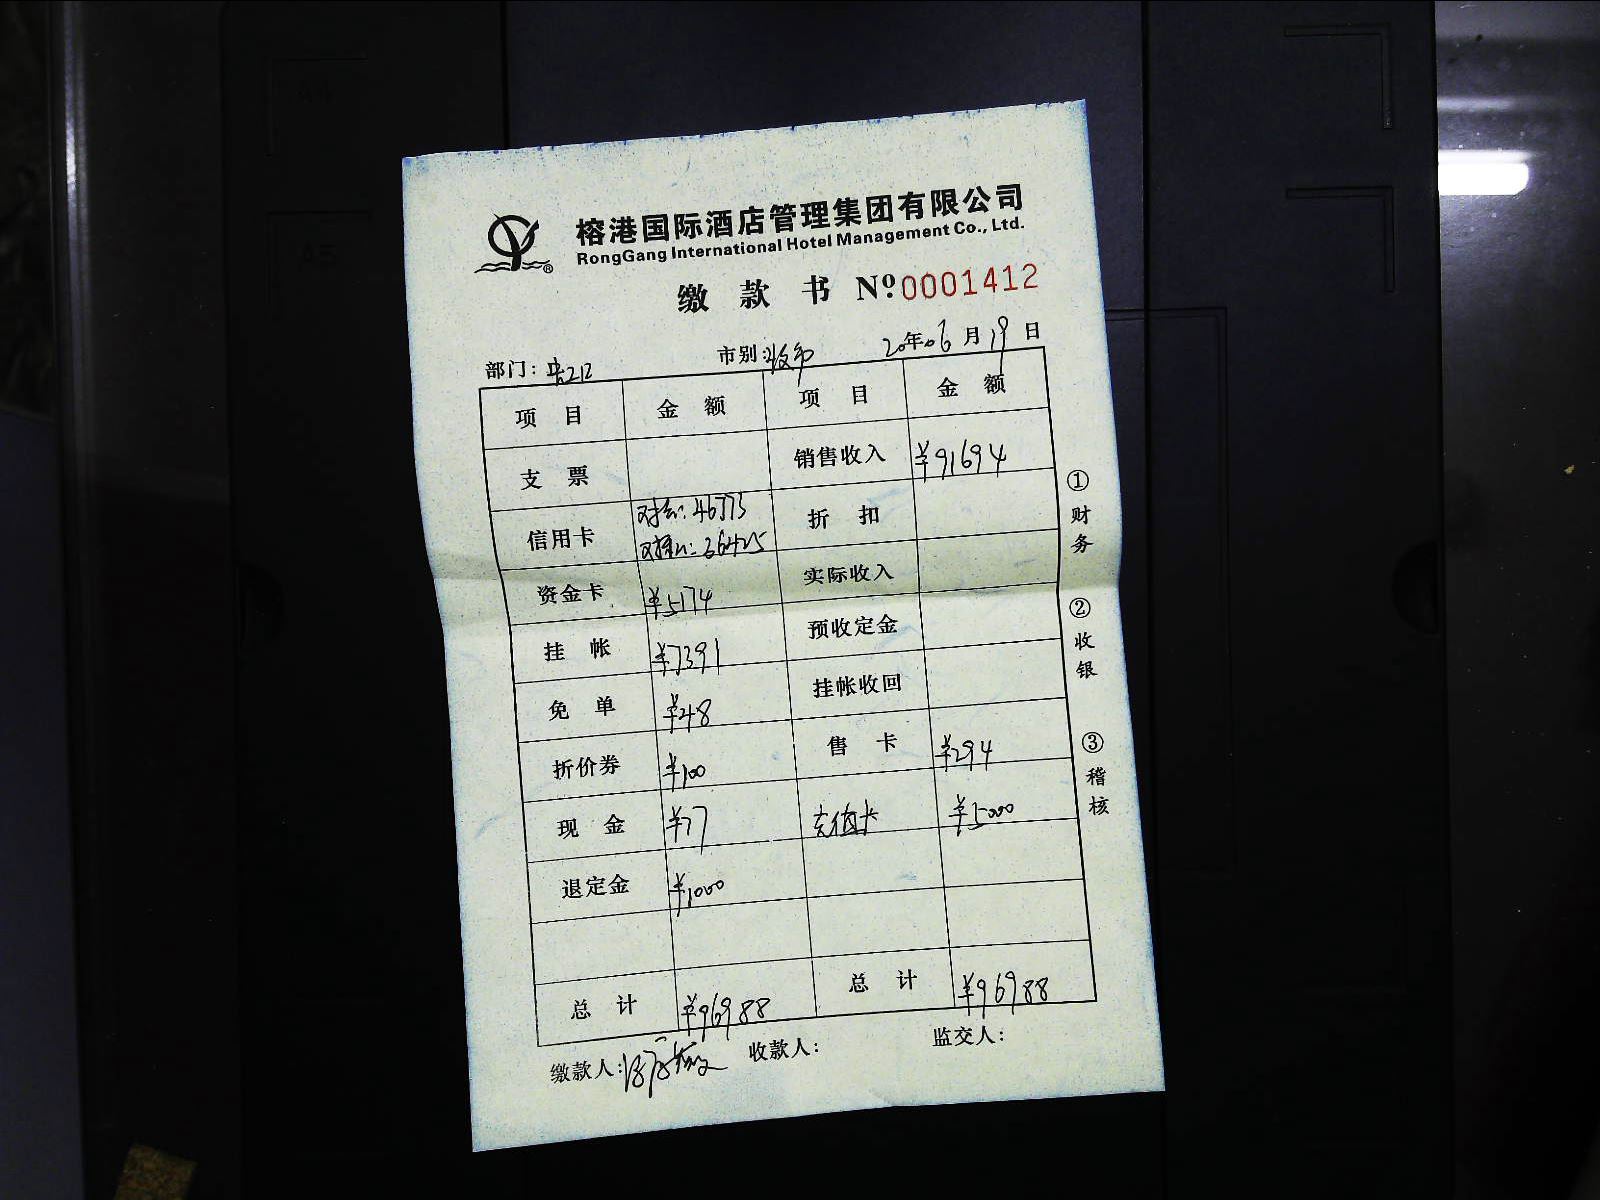 榕港国际酒店管理集团有限公司
RongGang International Hotel Management Co., Ltd.
缴 款 书 Nº 0001412
部门: 市别: 夜市 20年06月19日
项 目 金 额 项 目 金 额
支 票 销售收入 ¥91694
信用卡 折 扣
资金卡 ¥5174 实际收入
挂 帐 ¥7391 预收定金
免 单 ¥48 挂帐收回
折价券 ¥100 售 卡 ¥294
现 金 ¥77 充值卡 ¥5000
退定金 ¥1000
总 计 ¥96988 总 计 ¥96988
缴款人: 收款人: 监交人:
①财务 ②收银 ③稽核